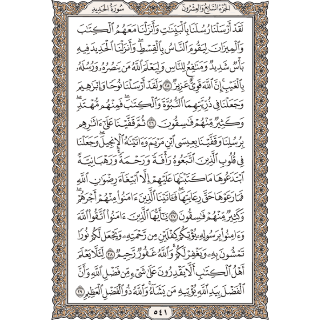 الجزء السابع والعشرون سورة الحديد
لقد أرسلنا رسلنا بالبينات وأنزلنا معهم الكتب
والميزان ليقوم الناس بالقسط وأنزلنا الحديد فيه
بأس شديد ومنفع للناس وليعلم الله من ينصره ورسله
بالغيب إن الله قوي عزيز ٢٥ ولقد أرسلنا نوحا وإبرهيم
وجعلنا في ذريتهما النبوة والكتب فمنهم مهتد
وكثير منهم فسقون ٢٦ ثم قفينا على ءاثرهم
برسلنا وقفينا بعيسى ابن مريم وءاتينه الإنجيل وجعلنا
في قلوب الذين اتبعوه رأفة ورحمة ورهبانية
ابتدعوها ما كتبنها عليهم إلا ابتغاء رضون الله
فما رعوها حق رعايتها فءاتينا الذين ءامنوا منهم أجرهم
وكثير منهم فسقون ٢٧ يأيها الذين ءامنوا اتقوا الله
وءامنوا برسوله يؤتكم كفلين من رحمته ويجعل لكم نورا
تمشون به ويغفر لكم والله غفور رحيم ٢٨ لئلا يعلم
أهل الكتب ألا يقدرون على شيء من فضل الله وأن
الفضل بيد الله يؤتيه من يشاء والله ذو الفضل العظيم ٢٩
٥٤١